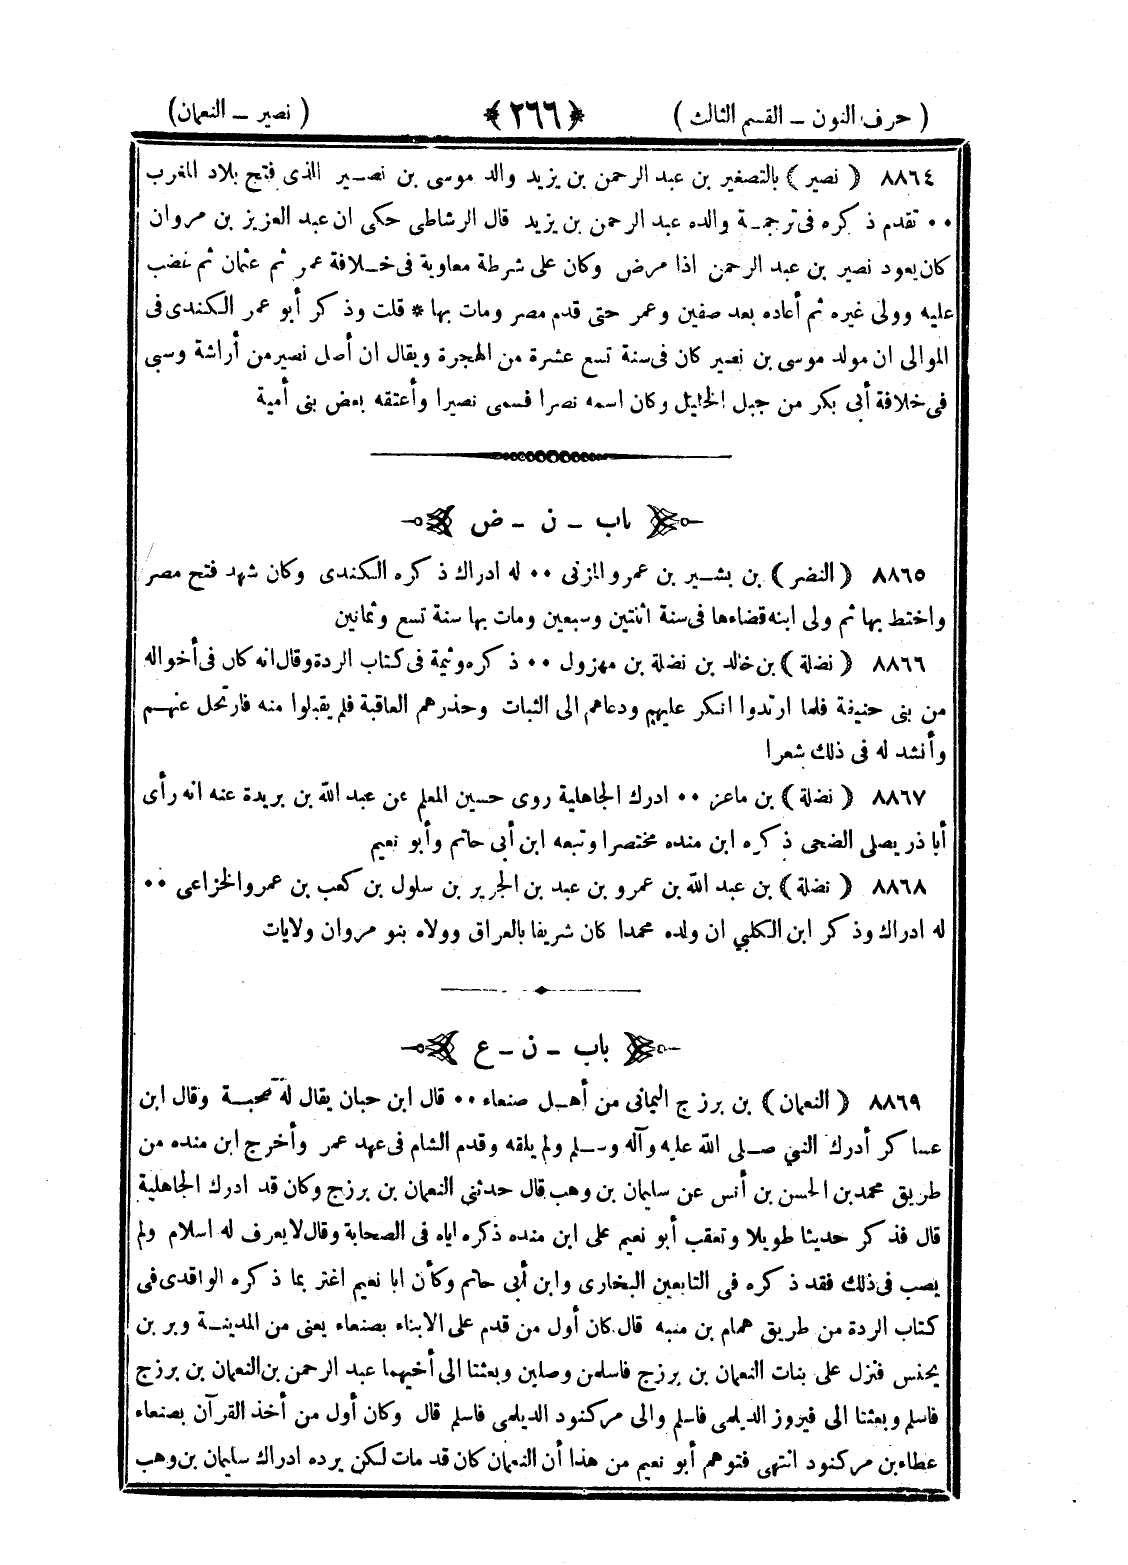 ( حرف النون – القسم الثالث ) ﴿ ٢٦٦ ﴾ ( نصير – النعمان )
٨٨٦٤ ( نصير ) بالتصغير بن عبد الرحمن بن يزيد والد موسى بن نصير الذى فتح بلاد المغرب
٠٠ تقدم ذكره فى ترجمة والده عبد الرحمن بن يزيد قال الرشاطى حكى ان عبد العزيز بن مروان
كان يعود نصير بن عبد الرحمن اذا مرض وكان على شرطة معاوية فى خلافة عمر ثم عثمان ثم غضب
عليه وولى غيره ثم أعاده بعد صفين وعمر حتى قدم مصر ومات بها * قلت وذكر أبو عمر الكندى فى
الموالى ان مولد موسى بن نصير كان فى سنة تسع عشرة من الهجرة ويقال ان أصل نصير من أراشة وسبى
فى خلافة أبى بكر من جبل الخليل وكان اسمه نصرا فسمى نصيرا وأعتقه بعض بنى أمية
باب – ن – ض
٨٨٦٥ ( النضر ) بن بشير بن عمرو المزنى ٠٠ له ادراك ذكره الكندى وكان شهد فتح مصر
واختط بها ثم ولى ابنه قضاءها فى سنة اثنتين وسبعين ومات بها سنة تسع وثمانين
٨٨٦٦ ( نضلة ) بن خالد بن نضلة بن مهزول ٠٠ ذكره وثيمة فى كتاب الردة وقال انه كان فى أخواله
من بنى حنيفة فلما ارتدوا انكر عليهم ودعاهم الى الثبات وحذرهم العاقبة فلم يقبلوا منه فارتحل عنهم
وأنشد له فى ذلك شعرا
٨٨٦٧ ( نضلة ) بن ماعز ٠٠ ادرك الجاهلية روى حسين المعلم عن عبد الله بن بريدة عنه انه رأى
أبا ذر يصلى الضحى ذكره ابن منده مختصرا وتبعه ابن أبى حاتم وأبو نعيم
٨٨٦٨ ( نضلة ) بن عبد الله بن عمرو بن عبد بن الجرير بن سلول بن كعب بن عمرو الخزاعى ٠٠
له ادراك وذكر ابن الكلبي ان ولده محمدا كان شريفا بالعراق وولاه بنو مروان ولايات
باب – ن – ع
٨٨٦٩ ( النعمان ) بن برزج اليمانى من أهل صنعاء ٠٠ قال ابن حبان يقال له صحبة وقال ابن
عساكر أدرك النبي صلى الله عليه وآله وسلم ولم يلقه وقدم الشام فى عهد عمر وأخرج ابن منده من
طريق محمد بن الحسن بن أنس عن سليمان بن وهب قال حدثنى النعمان بن برزج وكان قد ادرك الجاهلية
قال فذكر حديثا طويلا وتعقب أبو نعيم على ابن منده ذكره اياه فى الصحابة وقال لا يعرف له اسلام ولم
يصب فى ذلك فقد ذكره فى التابعين البخارى وابن أبى حاتم وكأن ابا نعيم اغتر بما ذكره الواقدى فى
كتاب الردة من طريق همام بن منبه قال كان أول من قدم على الابناء بصنعاء يعنى من المدينة وبر بن
يحنس فنزل على بنات النعمان بن برزج فاسلمن وصلين وبعثنا الى أخيهما عبد الرحمن بن النعمان بن برزج
فاسلم وبعثنا الى فيروز الديلمى فاسلم والى مركنود الديلمى فاسلم قال وكان أول من أخذ القرآن بصنعاء
عطاء بن مركنود انتهى فتوهم أبو نعيم من هذا أن النعمان كان قد مات لكن يرده ادراك سليمان بن وهب